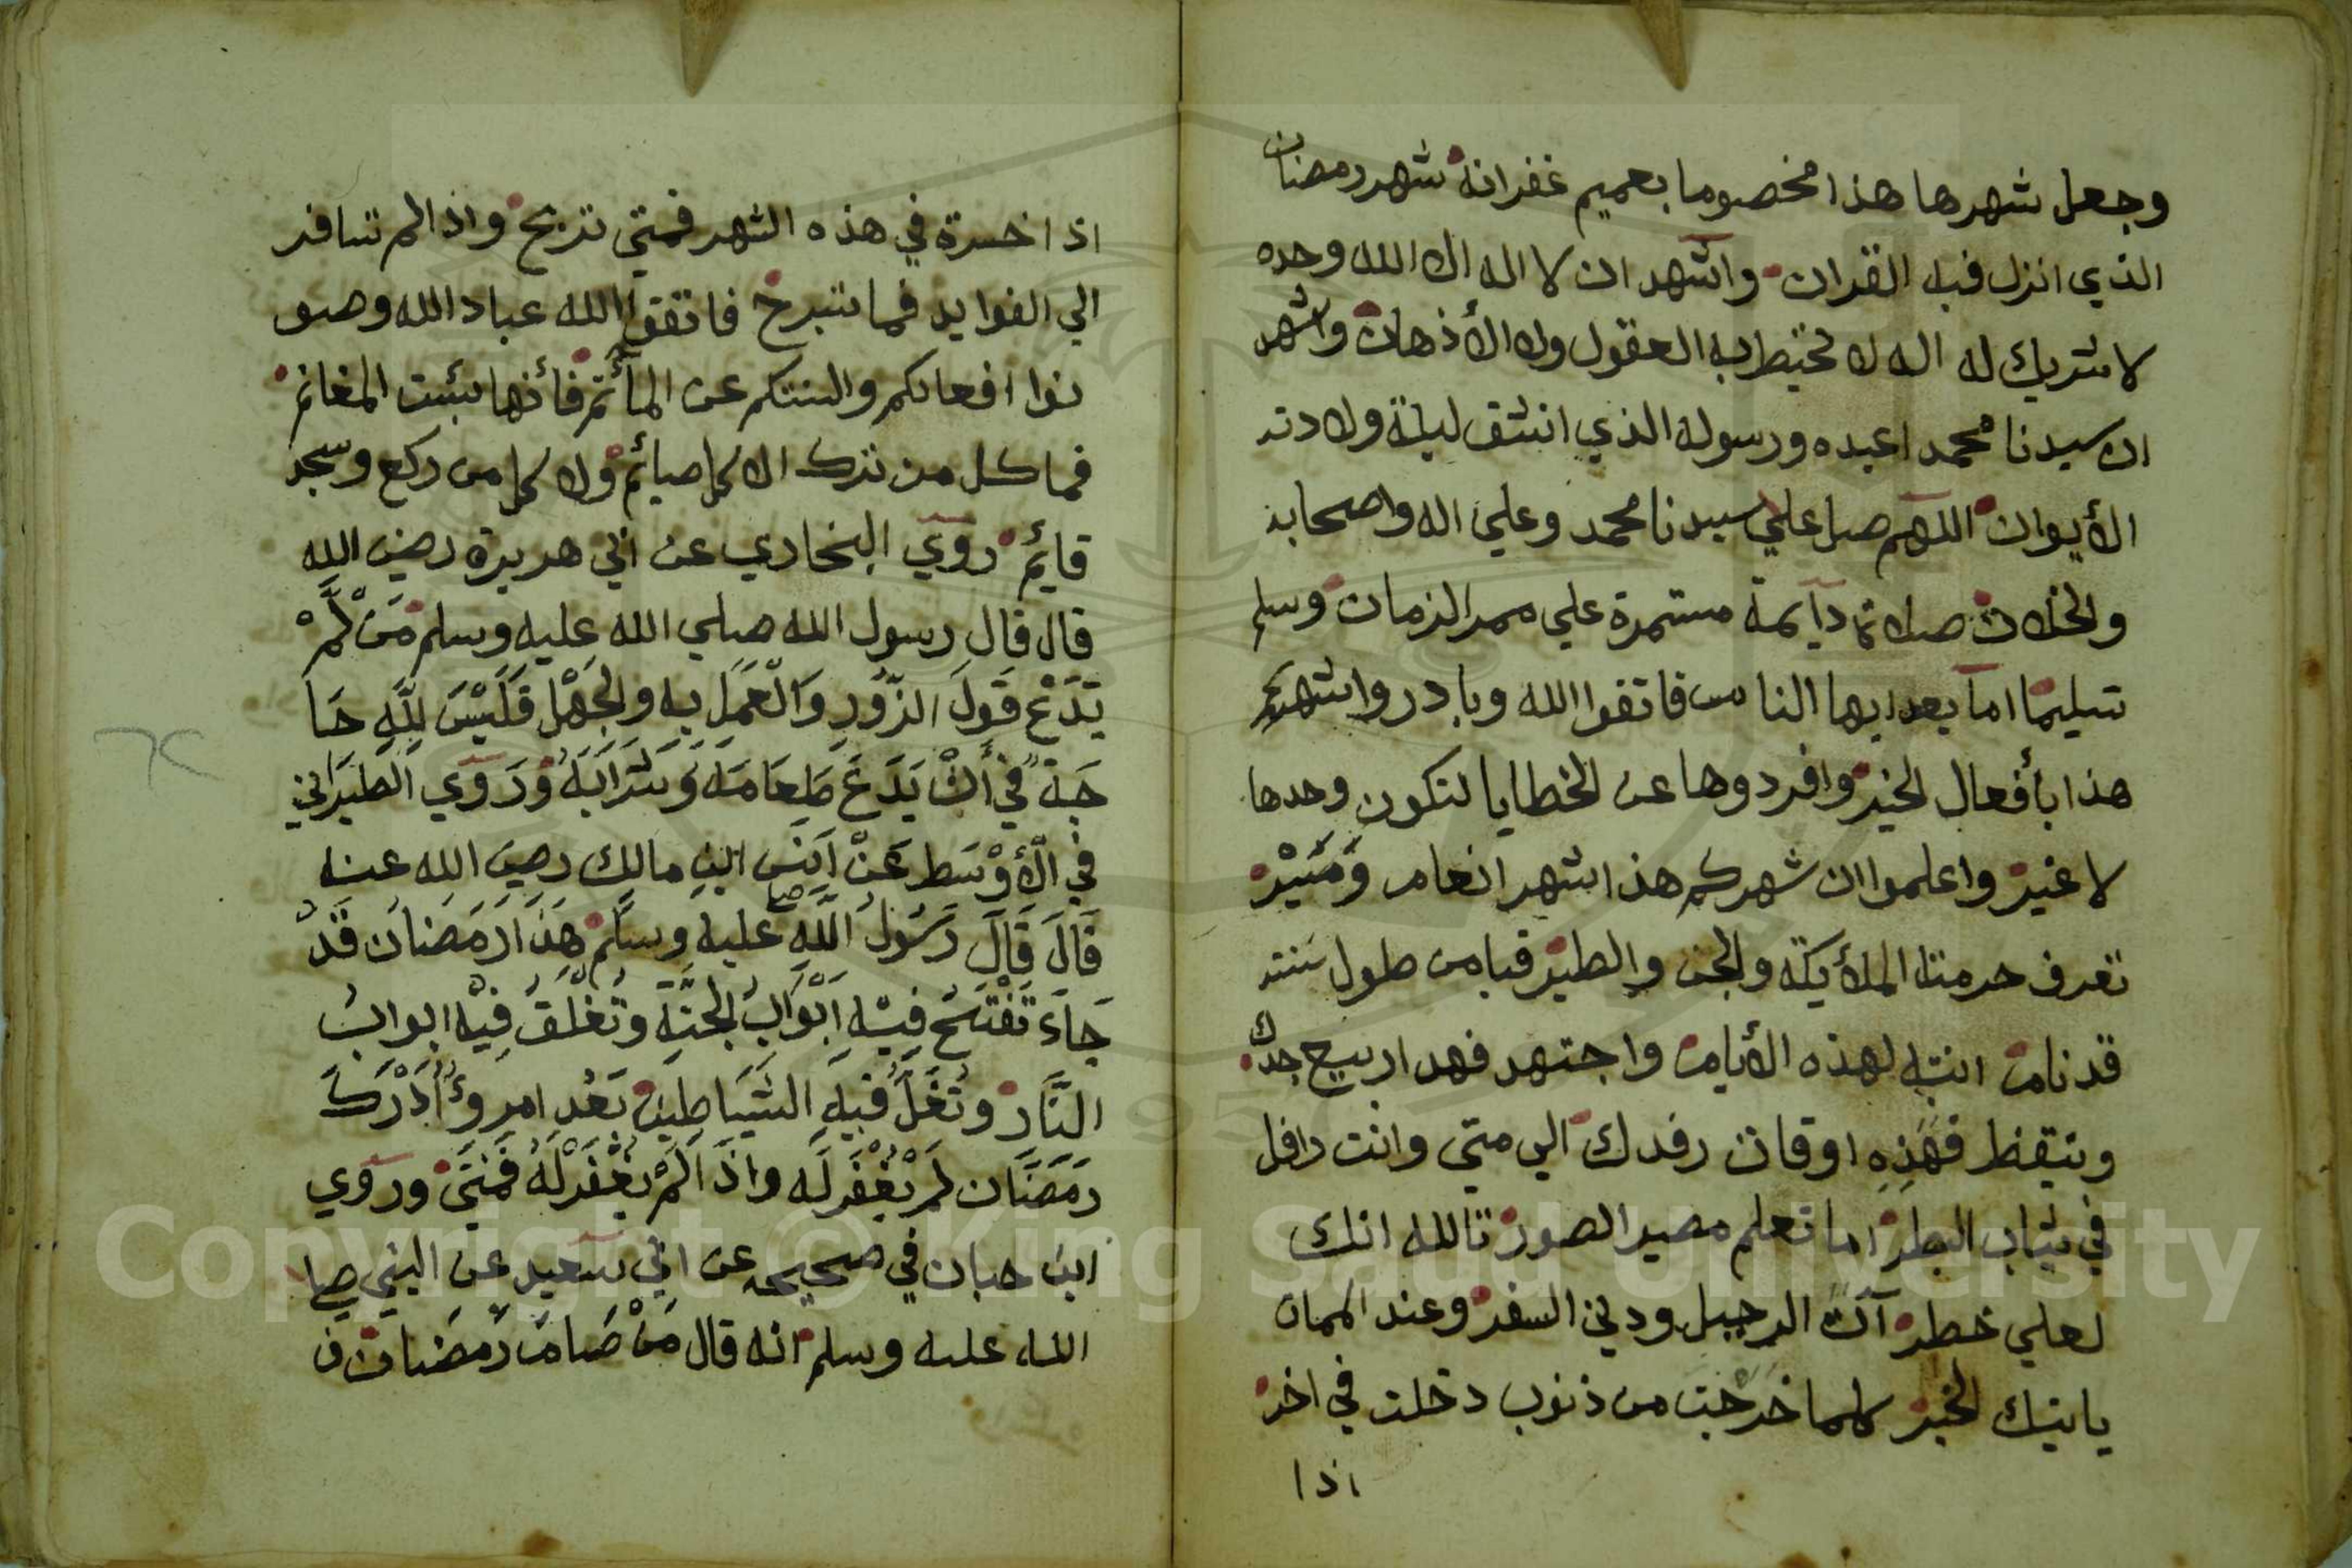 وجعل شهرها هذا مخصوصا بعميم غفرانه شهر رمضان
الذي انزل فيه القران واشهد ان لا اله الا الله وحده
لا شريك له اله لا تحيط به العقول ولا الأذهان واشهد
ان سيدنا محمدا عبده ورسوله الذي انشق ليلة ولادته
الأيوان اللهم صل علي سيدنا محمد وعلي اله واصحابه
والخلان صلاة دآيمة مستمرة علي ممر الزمان وسلم
تسليما اما بعد ايها الناس فاتقوا الله وبادروا شهركم
هذا بأفعال الخير وافردوها عن الخطايا لتكون وحدها
لا غير واعلموا ان شهركم هذا شهر انعام وَمَيْر
تعرف حرمته الملأيكة والجن والطير فيا من طول سنته
قد نام انتبه لهذه الأيام واجتهد فهد اربيع جدك
وتيقظ فهذه اوقات رفدك الي متي وانت رافل
في ثياب البطر اما تعلم مصير الصور تالله انك
لعلي خطر آن الرحيل ودني السفر وعند الممات
ياتيك الخبر كلما خرجت من ذنوب دخلت في اخر
اذا
اذا خسرة في هذه الشهر فمتي تربح واذا لم تسافر
الي الفوايد فما تبرح فاتقوا الله عباد الله وصو
نوا افعالكم والسنتكم عن المأثم فأنها بئست المغانم
فما كل من ترك الاكل صيائم ولا كل من ركع وسجد
قايم روي البخاري عن ابي هريرة رضي الله
قال قال رسول الله صلي الله عليه وسلم مَنْ لَمْ
يَدَعْ قَولَ الزُّورِ وَالْعَمَلِ بِه والجَهْلِ فَلَيْسَ لِلَّهِ حَا
جَة في أَنْ يَدَعَ طَعَامَهُ وَشَرَابَهُ وَرَوي الطَبَراني
في الأَوْسَط عَنْ اَنَس ابن مالك رضي الله عنه
قَالَ قَالَ رَسُولُ اللَّهِ صلي عليه وسلم هَذَا رَمَضَان قَدْ
جَاءَ تُفْتَحُ فِيْهِ اَبْوَابُ الجنَّة وتُغْلَقُ فِيْهِ ابوابُ
النَّار وتُغَلُّ فيهِ الشَّيَاطِين بَعُد امرؤ أَدْرَكَ
رَمَضَان لم يُغْفَر لَه واذَا لَمْ يُغْفَرْ لَهُ فَمَتَي وروي
ابن حبان في صحيحه عن ابي سعيد عن النبي صلي
الله عليه وسلم انه قال مَنْ صَامَ رَمَضَان ف
Copyright © King Saud University